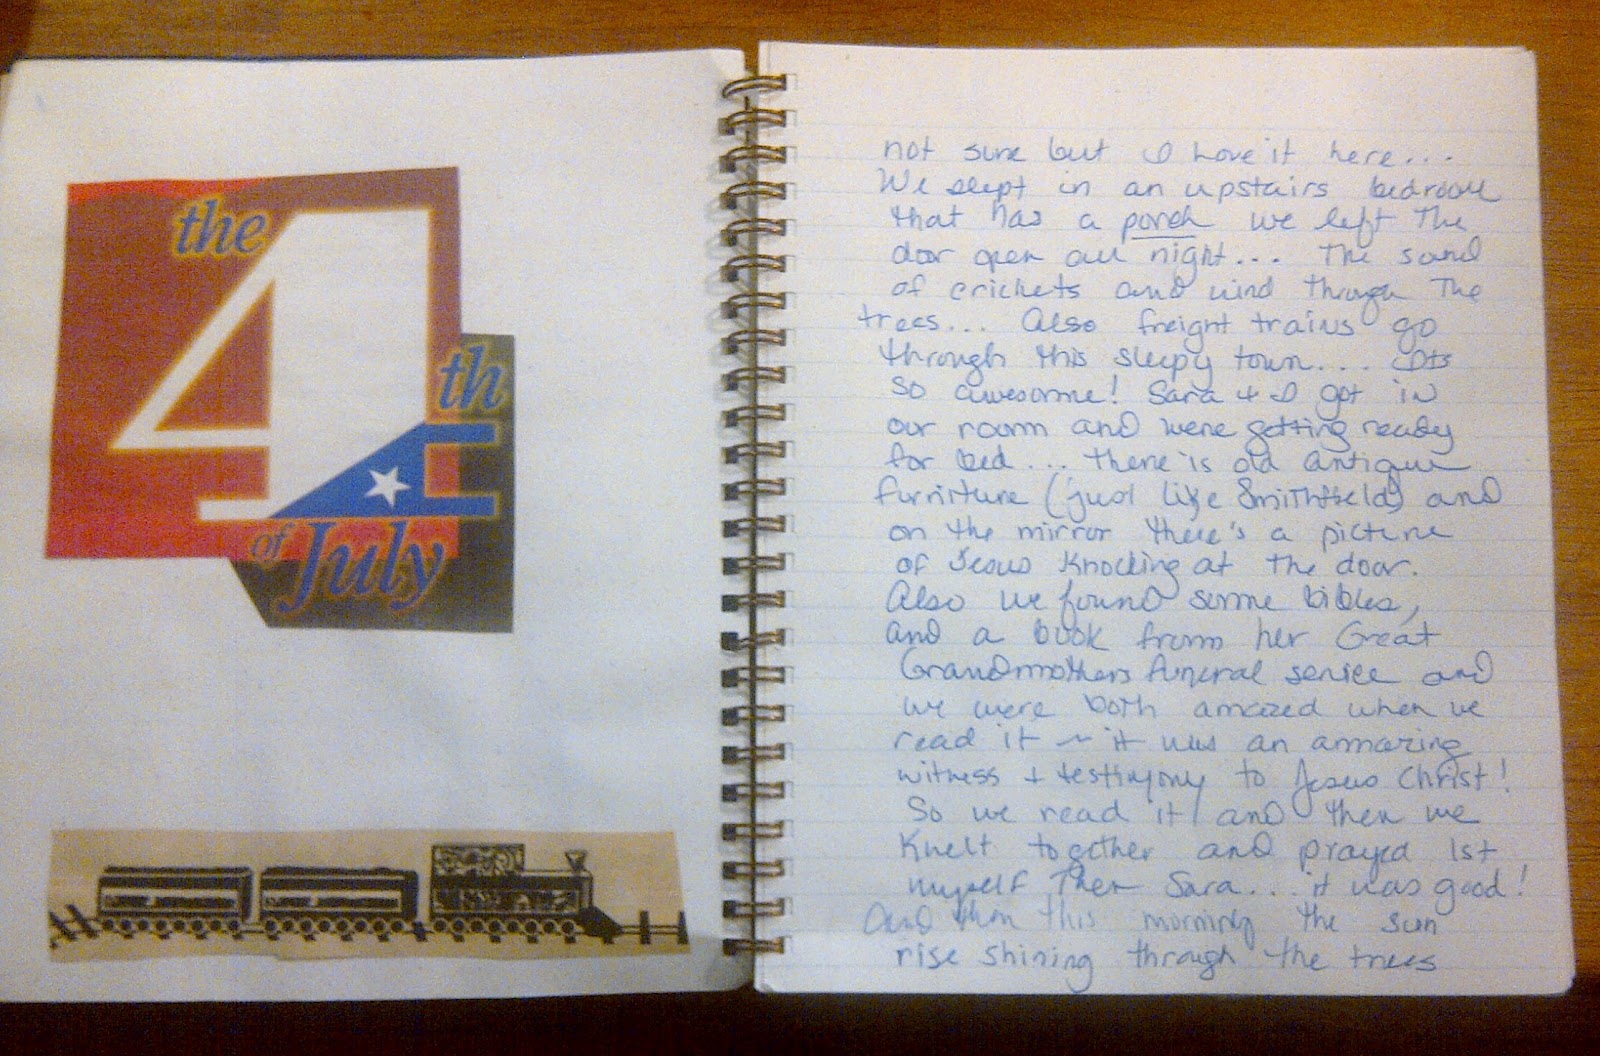 the
4
th
of July
not sure but I Love it here...
We slept in an upstairs bedroom
that has a porch we left the
door open all night... The sound
of crickets and wind through The
trees... Also freight trains go
through this sleepy town... Its
so awesome! Sara + I got in
our room and were getting ready
for bed... there is old antique
furniture (just like Smithfield) and
on the mirror there's a picture
of Jesus Knocking at the door.
Also we found some bibles,
and a book from her Great
Grandmothers funeral service and
we were both amazed when we
read it ~ it was an amazing
witness + testimony to Jesus Christ!
So we read it and then we
Knelt together and prayed 1st
myself Then Sara... it was good!
And then this morning the sun
rise shining through the trees